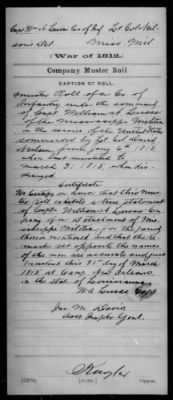 Capt. Wm A Lucas Co. of Inf Lt Col Nel-
sons Det. Miss Mil
(War of 1812.)
Company Muster Roll
CAPTION OF ROLL.
Muster Roll of a Co of
Infantry under the command
of Capt William A Lucas
of the Mississippi Militia
in the service of the United States
commanded by Lt Col David
Nelson from to
when last mustered to
March 31, 1815, when dis-
charged
Certificate
We Certify on honor, that this Mus-
ter Roll exhibits a true statement
of Capt William A Lucas Com-
pany of a detachment of Mis-
sissippi Militia for the period
therein mentioned and that the re-
marks set opposite the names
of the men are accurate and just
Mustered this 31st day of March
1815 at Camp New Orleans
in the State of Louisiana
W A Lucas Capt
Jno M Davis
Asst Insptr Genl.
Copyist.